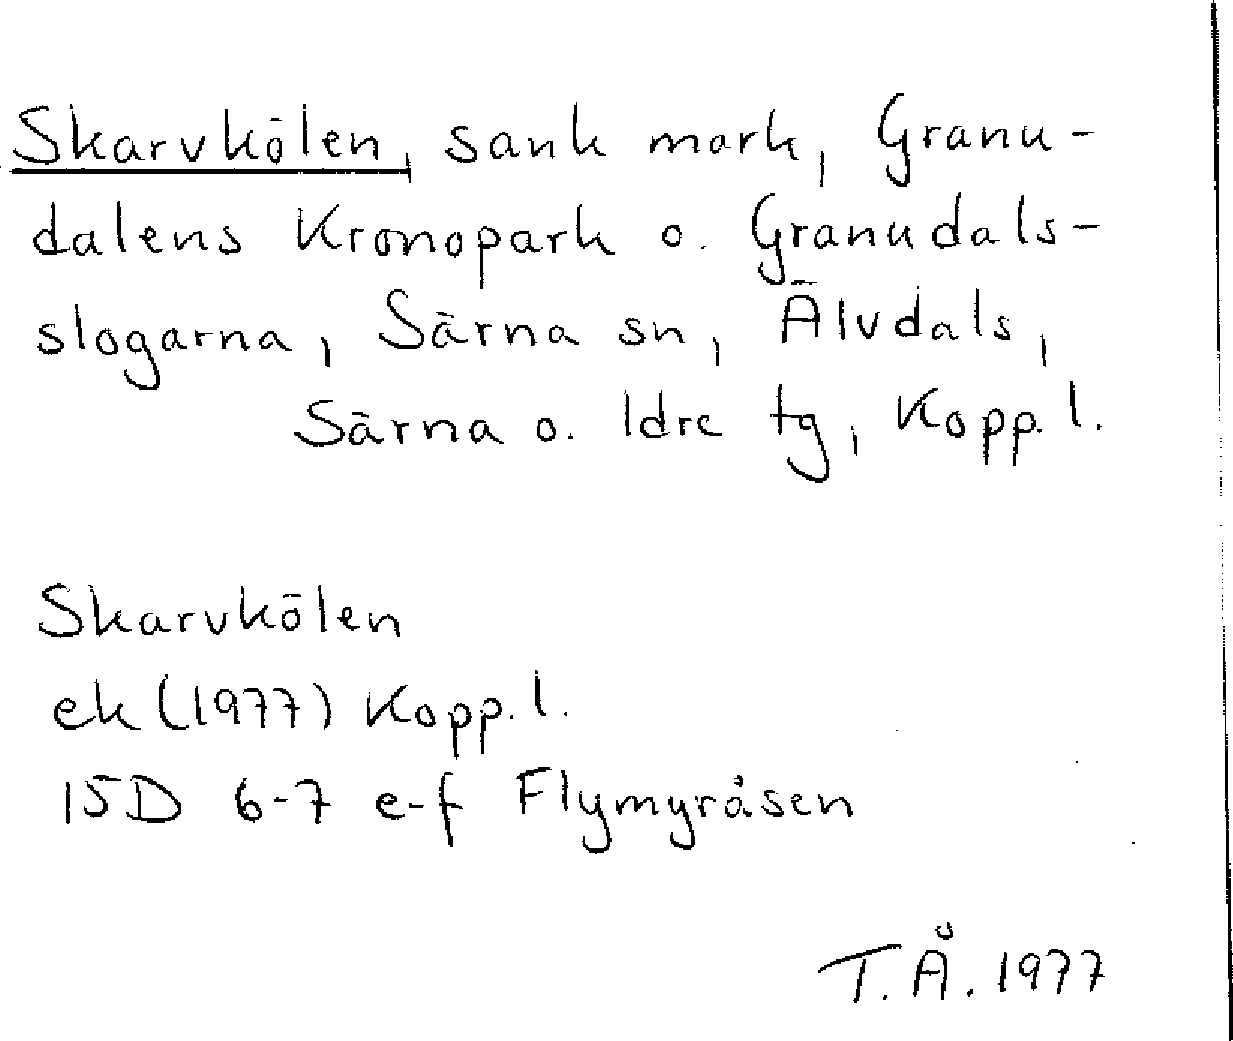 Skarvkölen, sank mark, Granu-
dalens Kronopark o. Granudals-
slogarna, Särna sn, Älvdals,
Särna o. Idre tg, Kopp. l.
Skarvkölen
ek (1977) Kopp. l.
15D 6-7 e-f Flymyråsen
T.Å. 1977